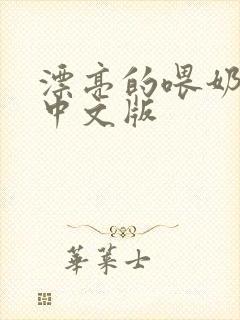 漂亮的喂奶
中文版
華萊士